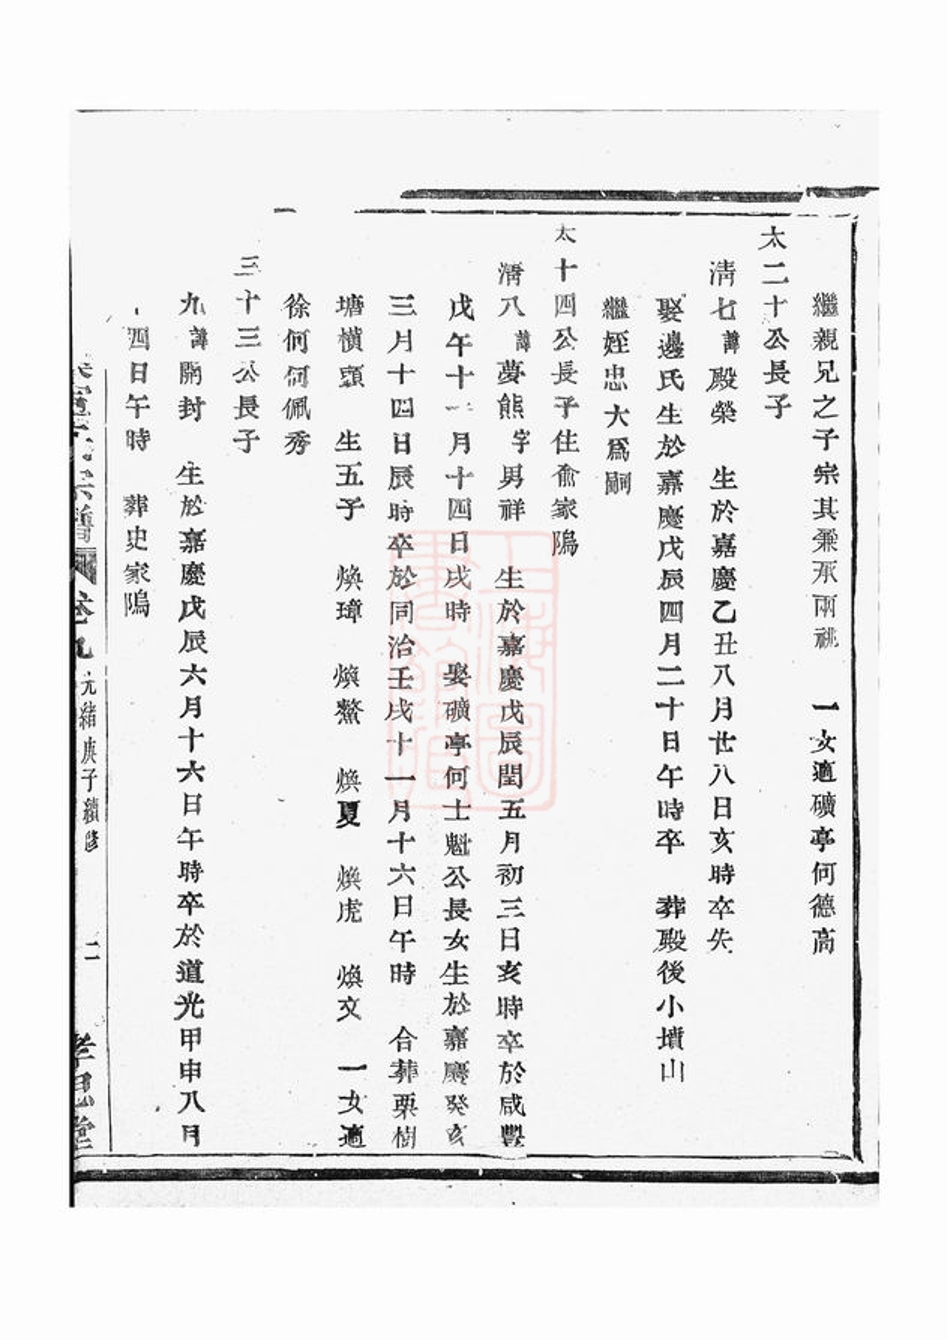 繼親兄之子宗其兼承兩祧　一女適礦亭何德高
太二十公長子
清七諱殿榮　生於嘉慶乙丑八月廿八日亥時卒失
娶邊氏生於嘉慶戊辰四月二十日午時卒　葬殿後小墳山
繼姪忠大爲嗣
太十四公長子住俞家隖
清八諱夢熊字男祥　生於嘉慶戊辰閏五月初三日亥時卒於咸豐
戊午十一月十四日戌時　娶礦亭何士魁公長女生於嘉慶癸亥
三月十四日辰時卒於同治壬戌十一月十六日午時　合葬栗樹
塘橫頭　生五子　煥璋　煥鰲　煥夏　煥虎　煥文　一女適
徐何何佩秀
三十三公長子
九諱開封　生於嘉慶戊辰六月十六日午時卒於道光甲申八月
四日午時　葬史家隖
宗譜　卷九　光緒庚子續修　二　孝思堂
上海圖書館藏